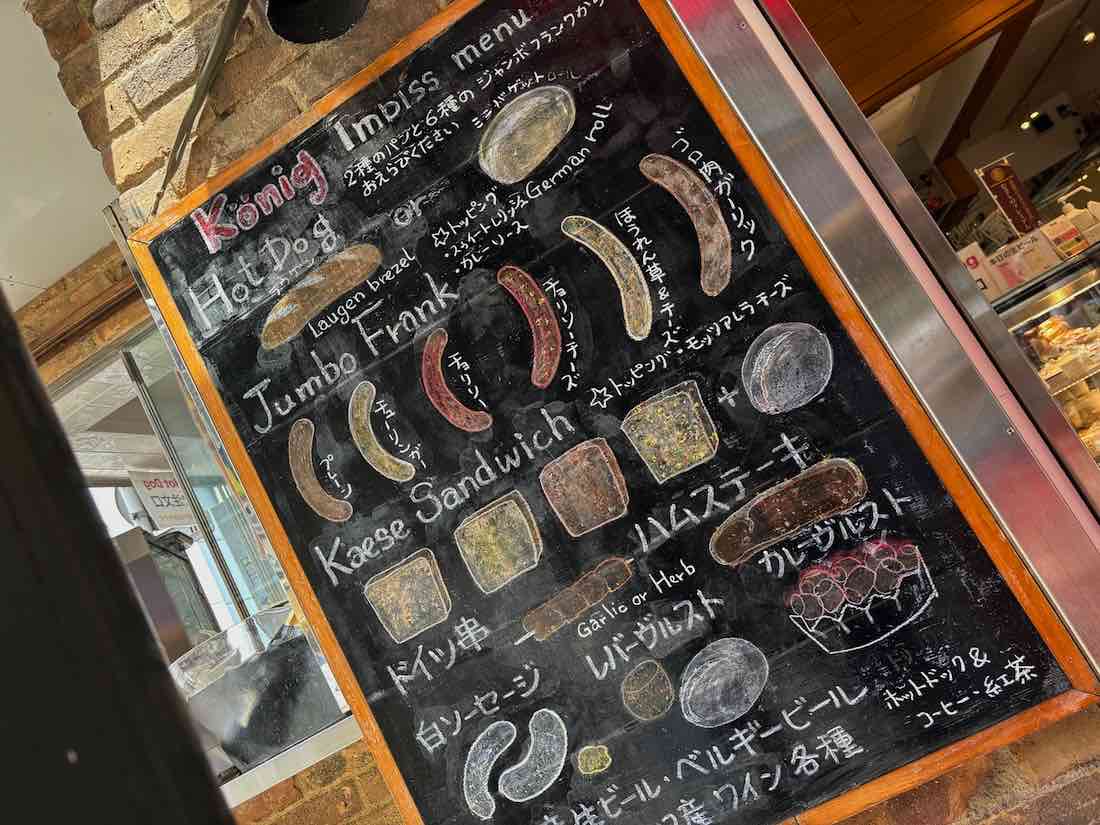 König Imbiss menu
2種のパンと6種のジャンボフランクから
おえらびください
Hot Dog
Laugen brezel
or
ミニバゲットロール
German roll
☆トッピング
・スウィートレリッシュ
・カレーソース
Jumbo Frank
プレーン
チューリンガー
チョリソー
チョリソーチーズ
ほうれん草&チーズ
ゴロ肉ガーリック
☆トッピング・モッツアレラチーズ
Kaese Sandwich
+
ハムステーキ
ドイツ串
Garlic or Herb
カレーヴルスト
白ソーセージ
レバーヴルスト
生ビール・ベルギービール
産ワイン各種
ホットドック&
コーヒー・紅茶
Hot Dog